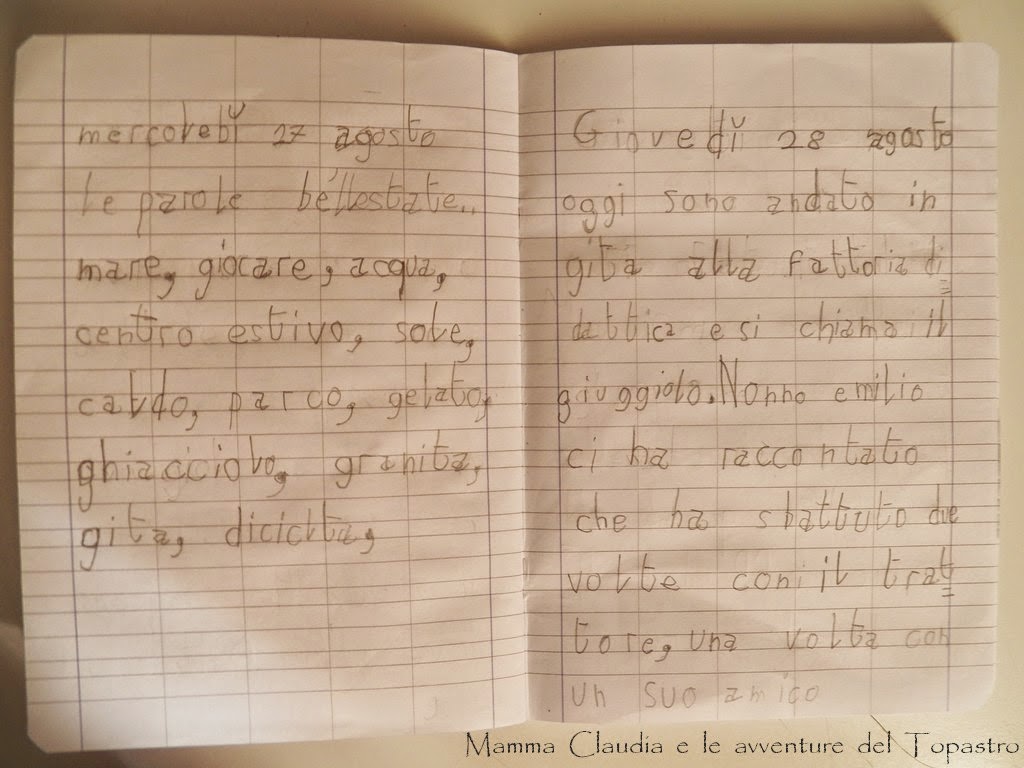 mercolebì 27 agosto
le parole béllestate..
mare, giocare, acqua,
centro estivo, sole,
caldo, parco, gelato,
ghiacciolo, granita,
gita, diciclta,
Giovedì 28 agosto
oggi sono andato in
gita alla fattoria di=
dattica e si chiama il
giuggiolo. Nonno emilio
ci ha raccontato
che ha sbattuto due
volte con il trat=
tore, una volta con
un suo amico
Mamma Claudia e le avventure del Topastro